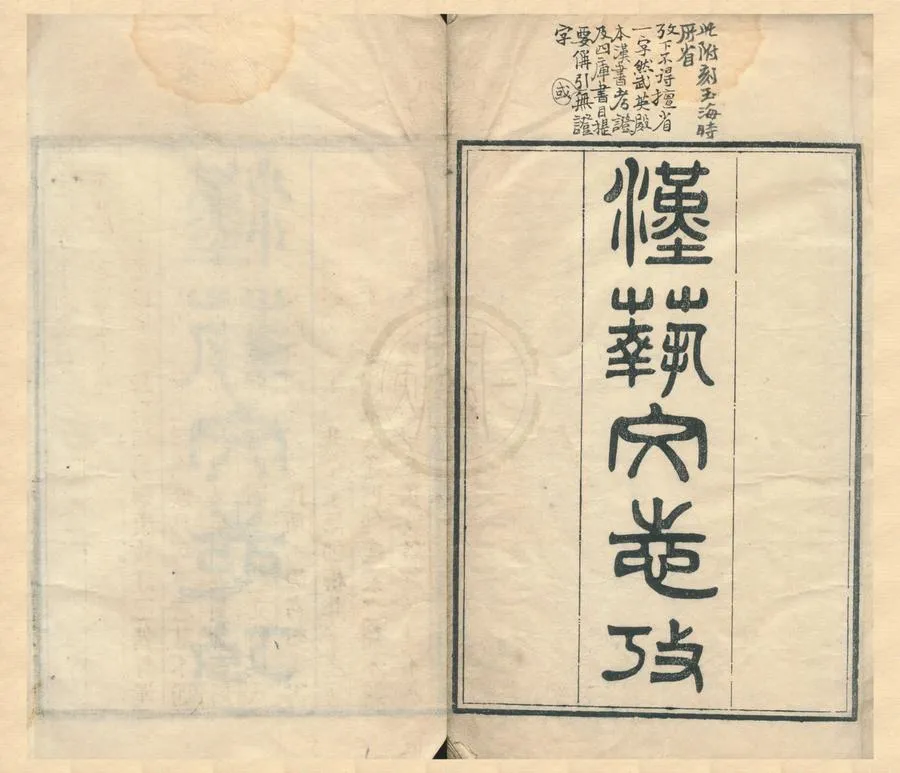 此附刻玉海時
所省
攷下不得擅省
一字然武英殿
本漢書考證
及四庫書目提
要偁引無證
字
或
漢蓺文志攷